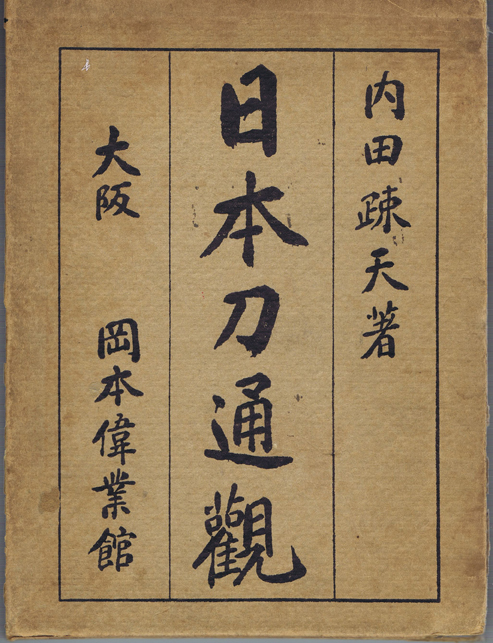 内田疎天著
日本刀通觀
大阪 岡本偉業館